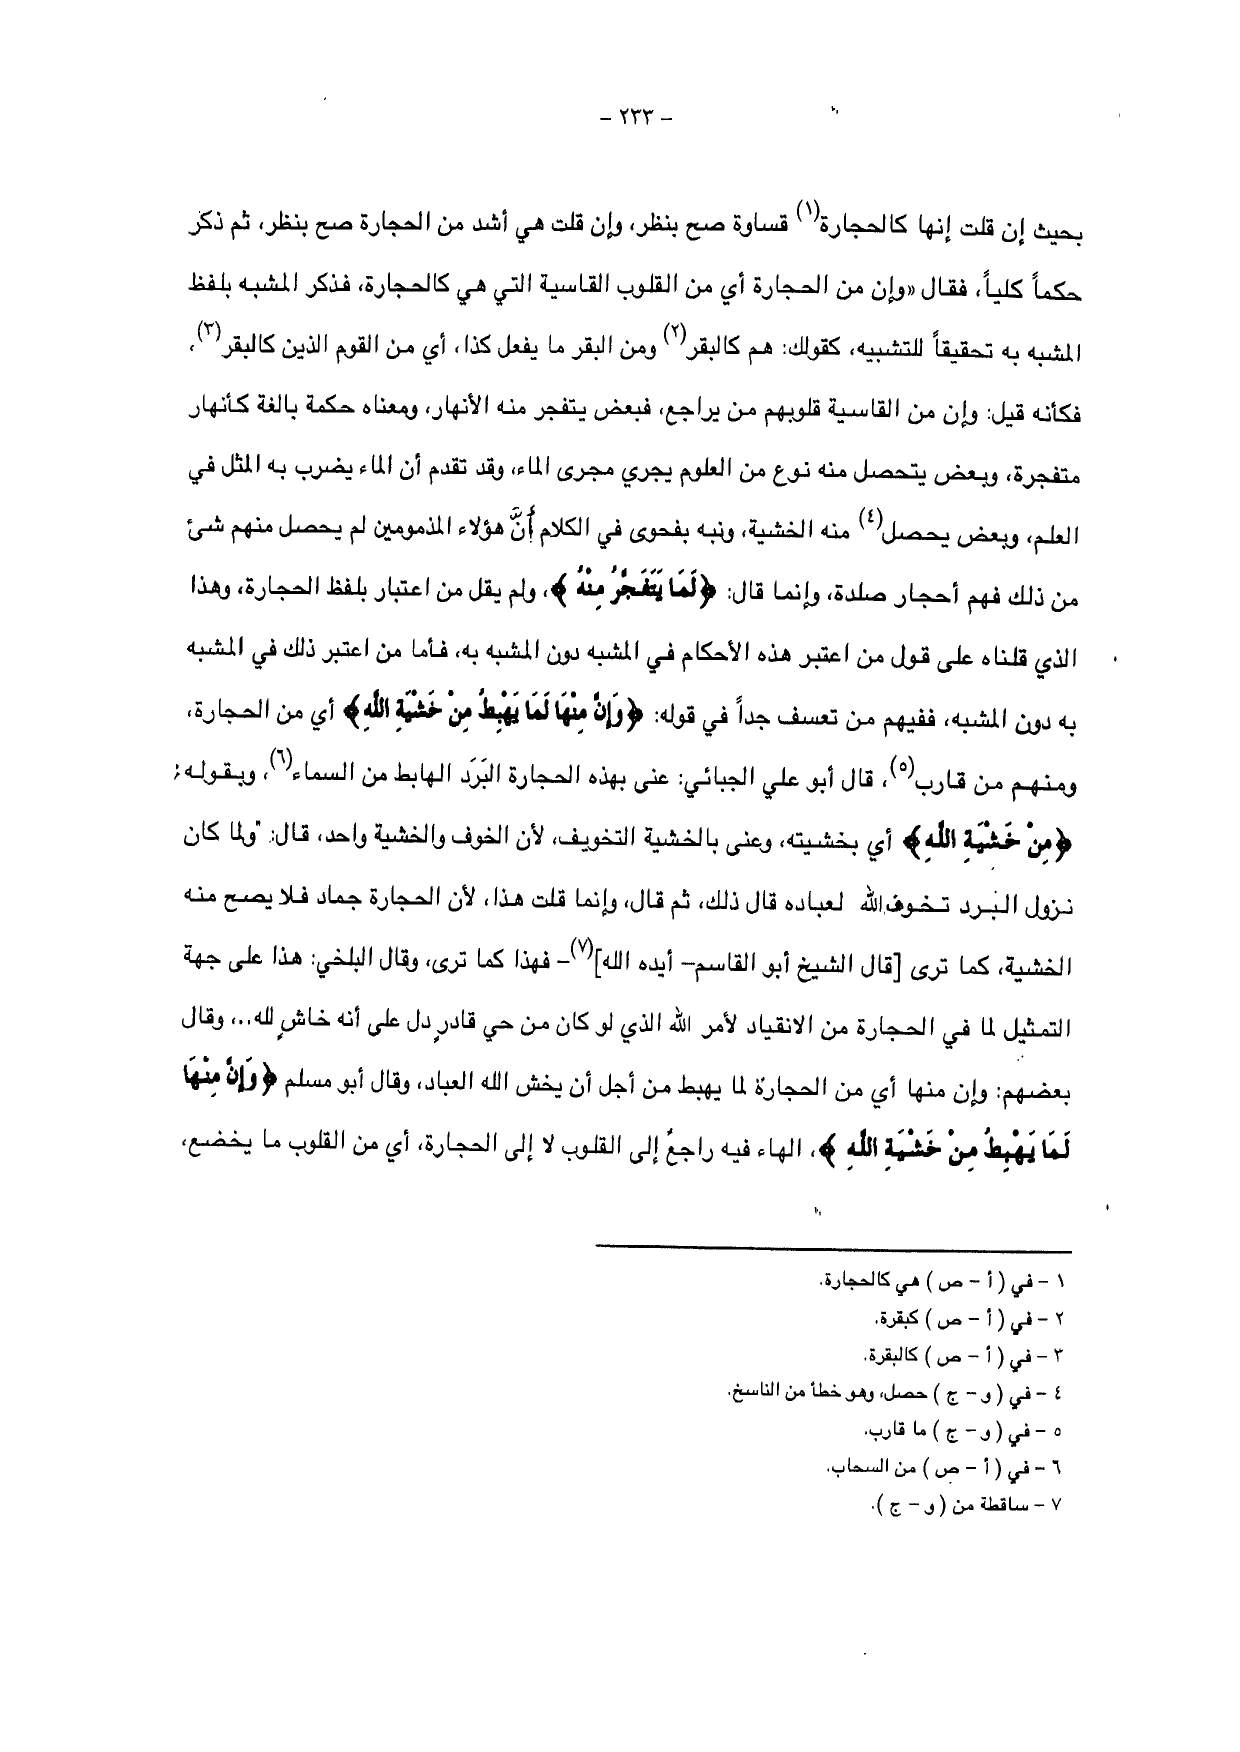 – ٢٣٣ –
بحيث إن قلت إنها كالحجارة(١) قساوة صح بنظر، وإن قلت هي أشد من الحجارة صح بنظر، ثم ذكر
حكماً كلياً، فقال «وإن من الحجارة أي من القلوب القاسية التي هي كالحجارة، فذكر المشبه بلفظ
المشبه به تحقيقاً للتشبيه، كقولك: هم كالبقر(٢) ومن البقر ما يفعل كذا، أي من القوم الذين كالبقر(٣)،
فكأنه قيل: وإن من القاسية قلوبهم من يراجع، فبعض يتفجر منه الأنهار، ومعناه حكمة بالغة كأنهار
متفجرة، وبعض يتحصل منه نوع من العلوم يجري مجرى الماء، وقد تقدم أن الماء يضرب به المثل في
العلم، وبعض يحصل(٤) منه الخشية، ونبه بفحوى في الكلام أنَّ هؤلاء المذمومين لم يحصل منهم شئ
من ذلك فهم أحجار صلدة، وإنما قال: ﴿لَمَا يَتَفَجَّرُ مِنْهُ﴾، ولم يقل من اعتبار بلفظ الحجارة، وهذا
الذي قلناه على قول من اعتبر هذه الأحكام في المشبه دون المشبه به، فأما من اعتبر ذلك في المشبه
به دون المشبه، ففيهم من تعسف جداً في قوله: ﴿وَإِنَّ مِنْهَا لَمَا يَهْبِطُ مِنْ خَشْيَةِ اللَّهِ﴾ أي من الحجارة،
ومنهم من قارب(٥)، قال أبو علي الجبائي: عنى بهذه الحجارة البَرَد الهابط من السماء(٦)، وبقوله:
﴿مِنْ خَشْيَةِ اللَّهِ﴾ أي بخشيته، وعنى بالخشية التخويف، لأن الخوف والخشية واحد، قال: "ولما كان
نزول البرد تخوف الله لعباده قال ذلك، ثم قال، وإنما قلت هذا، لأن الحجارة جماد فلا يصح منه
الخشية، كما ترى [قال الشيخ أبو القاسم– أيده الله](٧)– فهذا كما ترى، وقال البلخي: هذا على جهة
التمثيل لما في الحجارة من الانقياد لأمر الله الذي لو كان من حي قادرٍ دل على أنه خاشٍ لله..، وقال
بعضهم: وإن منها أي من الحجارة لما يهبط من أجل أن يخش الله العباد، وقال أبو مسلم ﴿وَإِنَّ مِنْهَا
لَمَا يَهْبِطُ مِنْ خَشْيَةِ اللَّهِ﴾، الهاء فيه راجعٌ إلى القلوب لا إلى الحجارة، أي من القلوب ما يخضع،
١ – في (أ – ص) هي كالحجارة.
٢ – في (أ – ص) كبقرة.
٣ – في (أ – ص) كالبقرة.
٤ – في (و – ج) حصل، وهو خطأ من الناسخ.
٥ – في (و – ج) ما قارب.
٦ – في (أ – ص) من السحاب.
٧ – ساقطة من (و – ج).